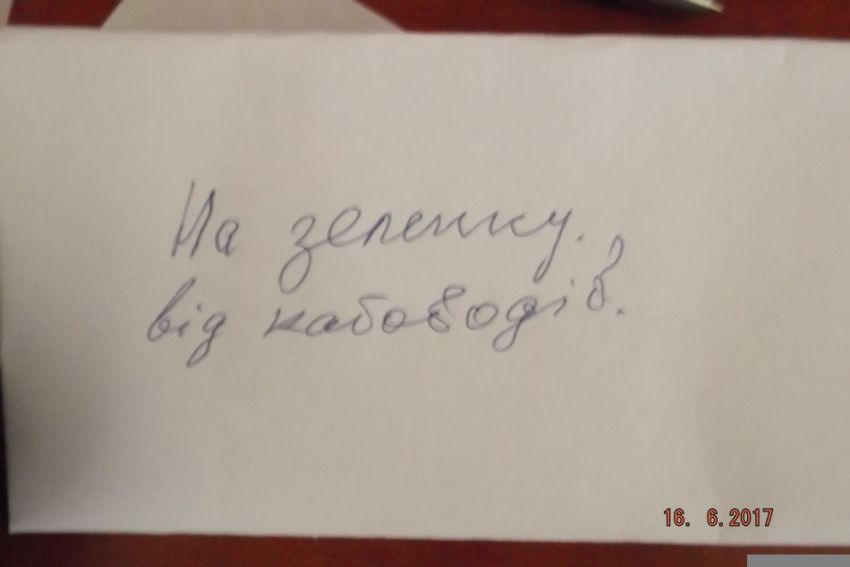 На зеленку.
від кабоводів.
16. 6.2017